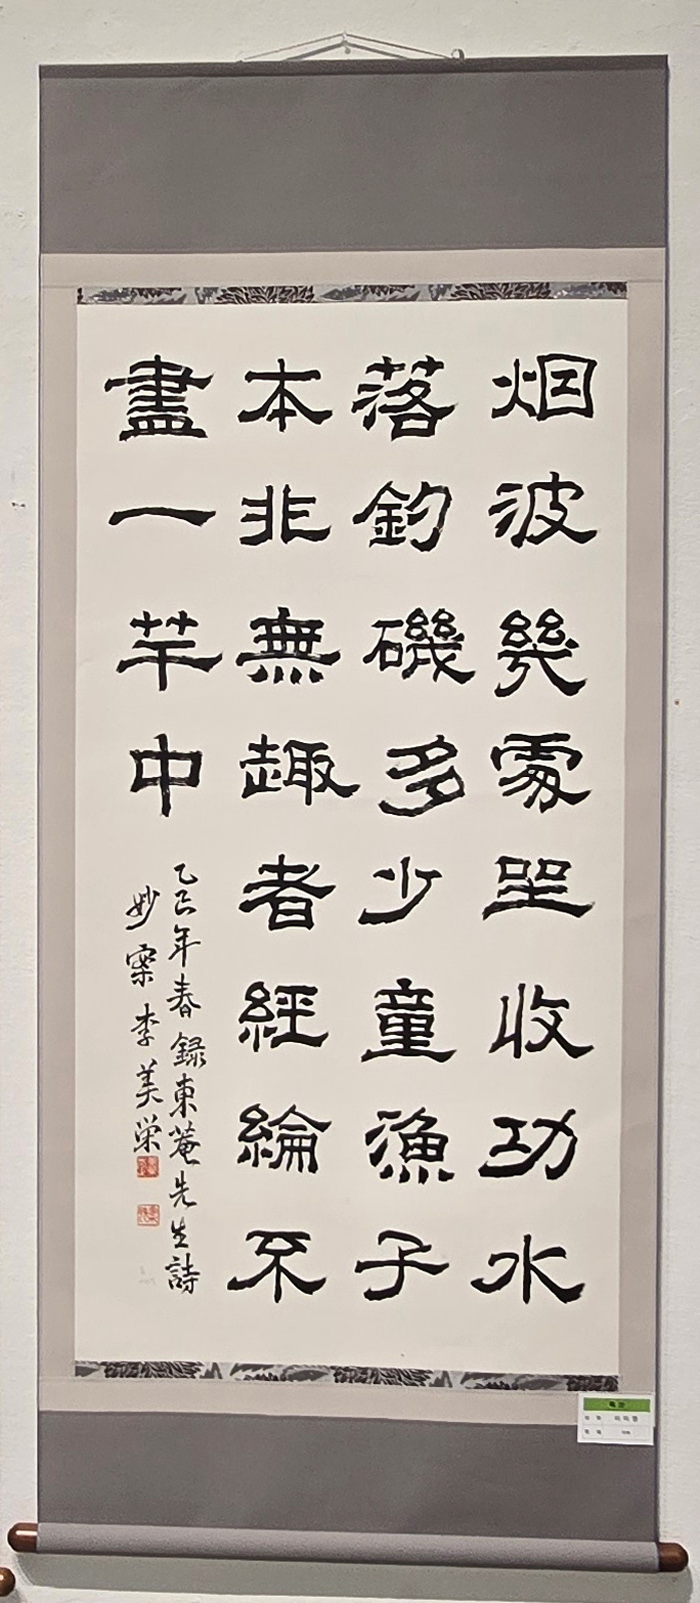 烟波幾處坐收功水
落釣磯多少童漁子
本非無趣者經綸不
盡一竿中
乙巳年春録東菴先生詩
妙 李美栄